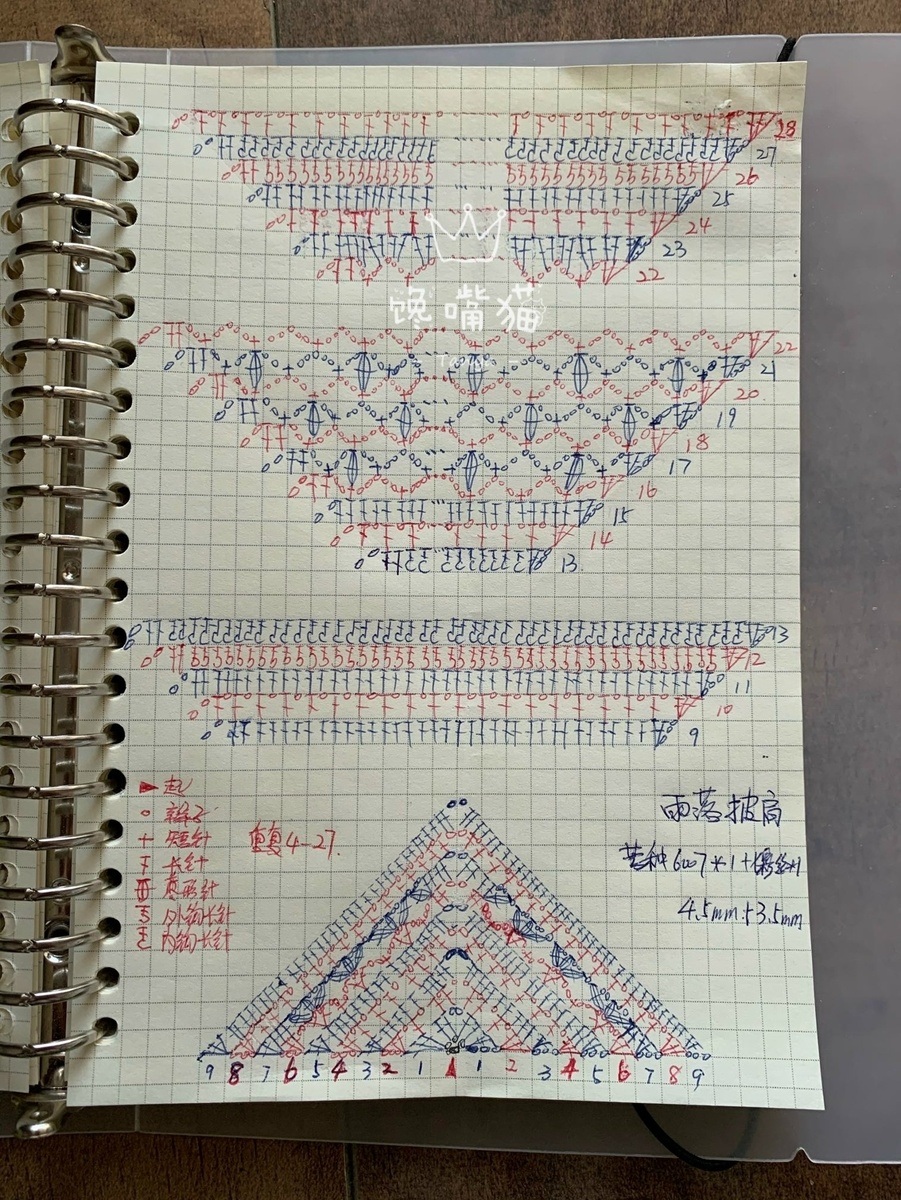 28
27
26
25
24
23
22
馋嘴猫
22
21
20
19
18
17
16
15
14
13
13
12
11
10
9
起
辫子
短针
长针
枣形针
外钩长针
内钩长针
重复4-27.
雨落披肩
芒种6007*1+
4.5mm+3.5mm
9 8 7 6 5 4 3 2 1 1 2 3 4 5 6 7 8 9